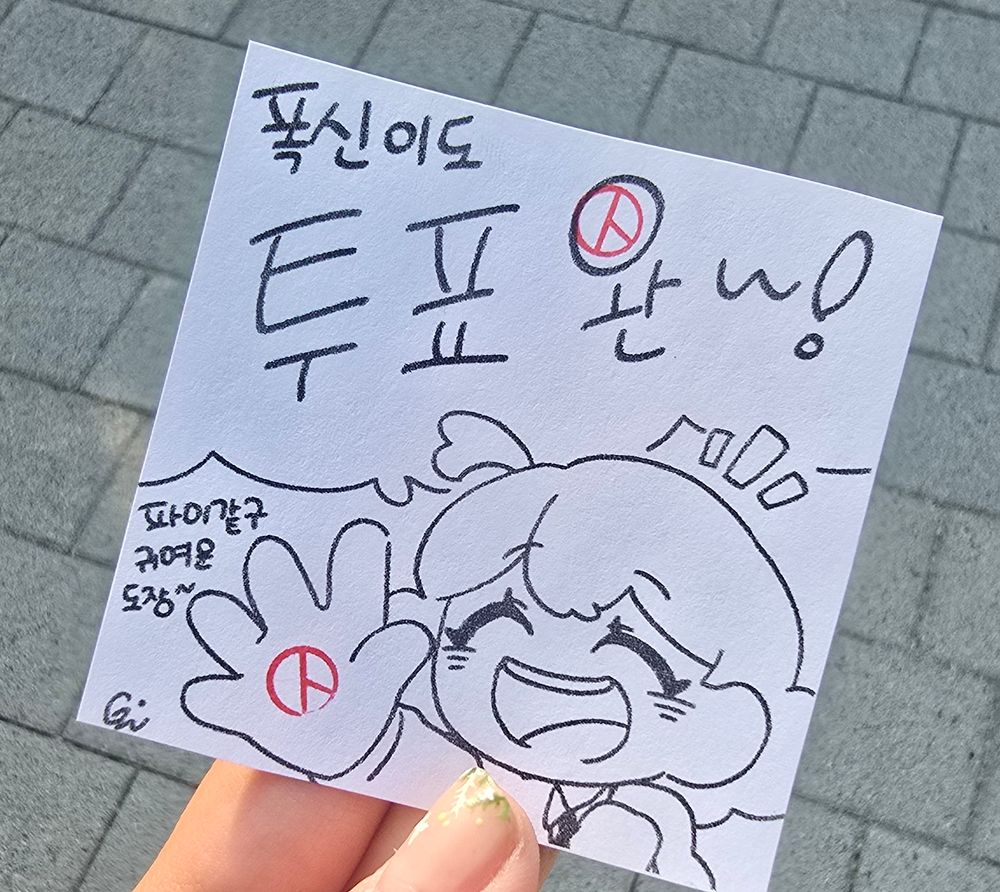 폭신이도
투표 완~!
파이같구
귀여운
도장~
Gi